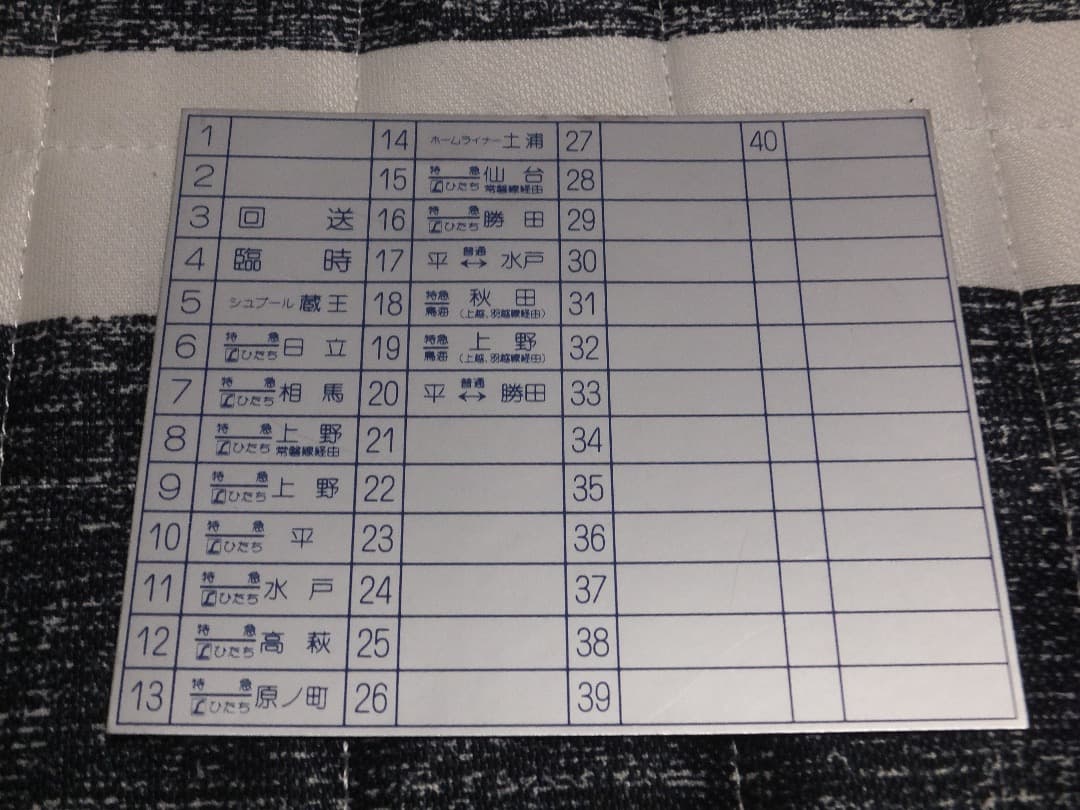 1
2
3 回送
4 臨時
5 シュプール 蔵王
6 特急 ひたち 日立
7 特急 ひたち 相馬
8 特急 ひたち 上野 常磐線経由
9 特急 ひたち 上野
10 特急 ひたち 平
11 特急 ひたち 水戸
12 特急 ひたち 高萩
13 特急 ひたち 原ノ町
14 ホームライナー 土浦
15 特急 ひたち 仙台 常磐線経由
16 特急 ひたち 勝田
17 平 普通 ↔ 水戸
18 特急 鳥海 秋田 (上越、羽越線経由)
19 特急 鳥海 上野 (上越、羽越線経由)
20 平 普通 ↔ 勝田
21
22
23
24
25
26
27
28
29
30
31
32
33
34
35
36
37
38
39
40